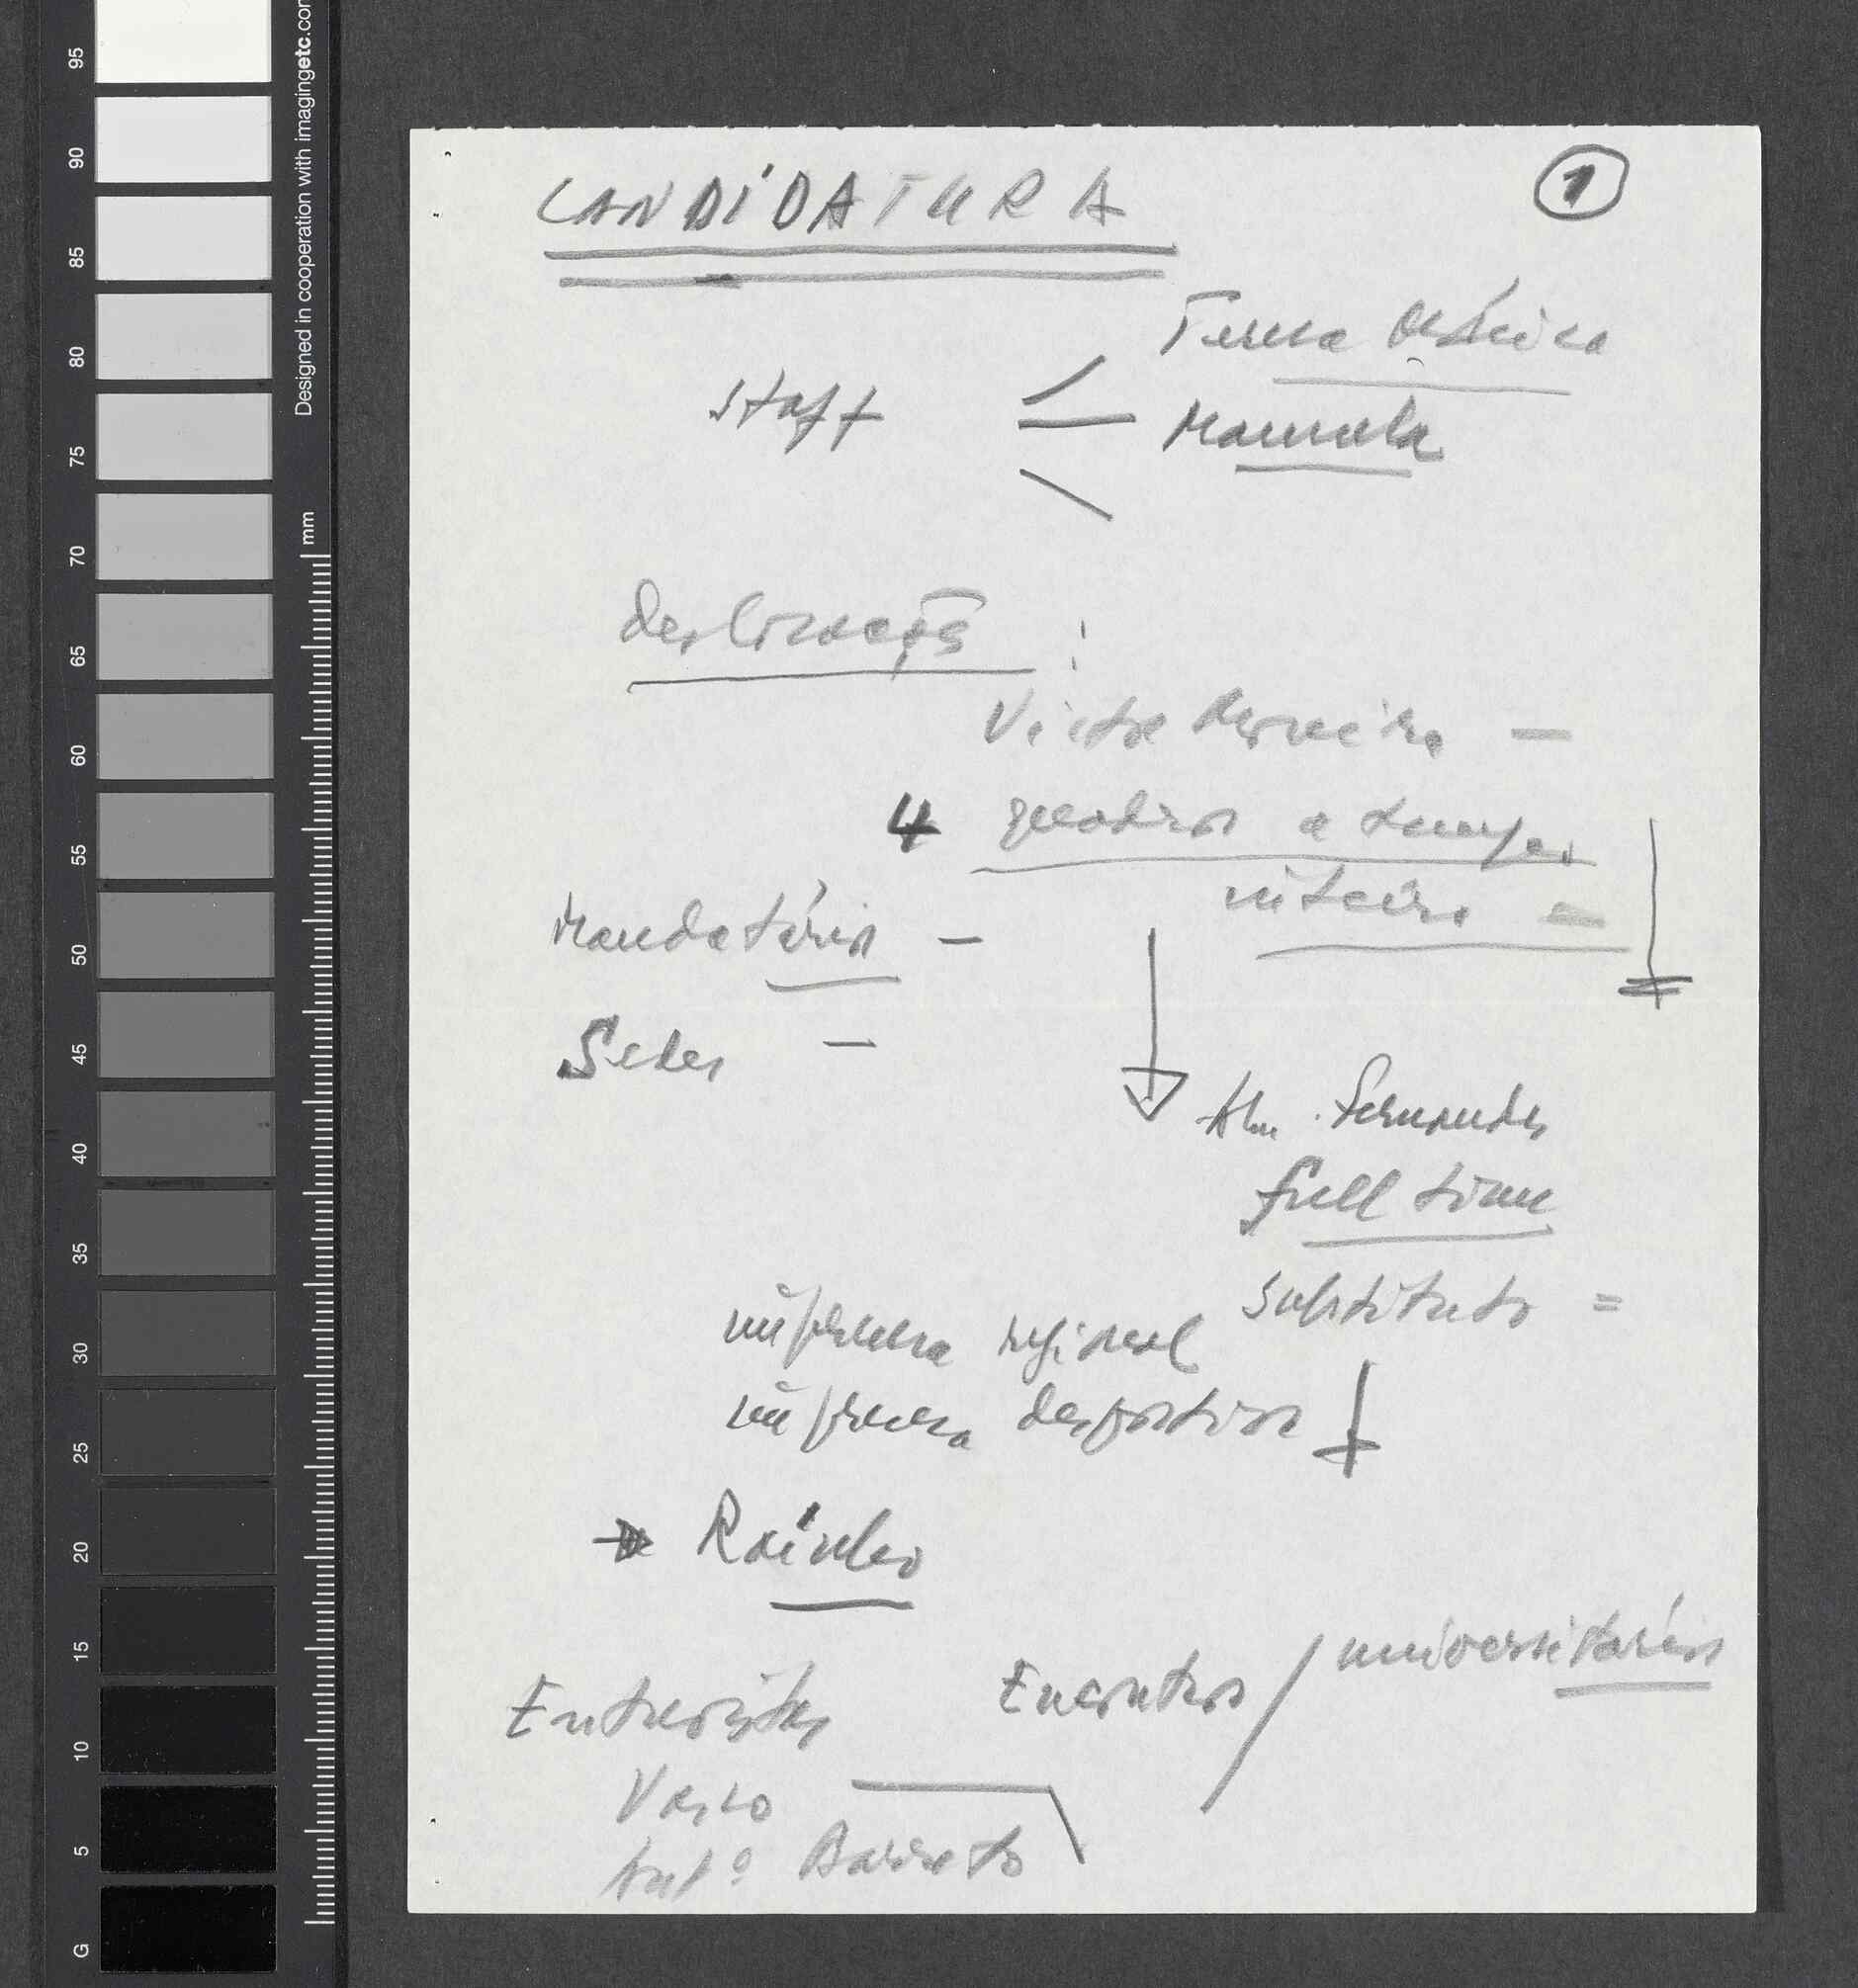 CANDIDATURA
1
Teresa
Staff
Manuela
Deslocações :
Victor
4 quadros a tempo
inteiro =
Mandatários -
Sedes -
Alm. Fernandes
full time
substituto =
imprensa regional
imprensa desportiva
Rainho
Entrevistas
Encontros / universitários
Vasco
Antº Barreto
95
90
85
80
75
70
65
60
55
50
45
40
35
30
25
20
15
10
5
G
mm
Designed in cooperation with imagingetc.com